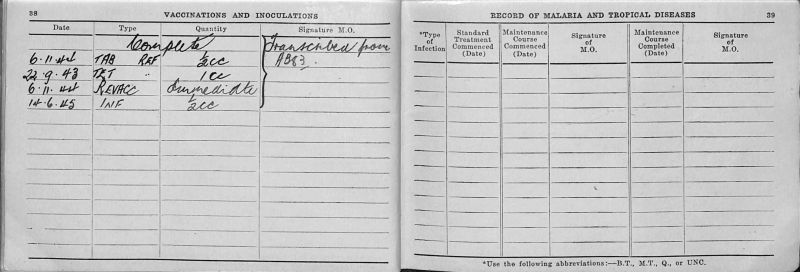 38 VACCINATIONS AND INOCULATIONS
Date Type Quantity Signature M.O.
Complete Transcribed from
6.11.44 TAB REF ½cc AB83.
22.9.43 TET " 1cc
6.11.44 REVACC Immediate
14.6.45 INF ½cc
RECORD OF MALARIA AND TROPICAL DISEASES 39
*Type of Infection
Standard Treatment Commenced (Date)
Maintenance Course Commenced (Date)
Signature of M.O.
Maintenance Course Completed (Date)
Signature of M.O.
*Use the following abbreviations:—B.T., M.T., Q., or UNC.